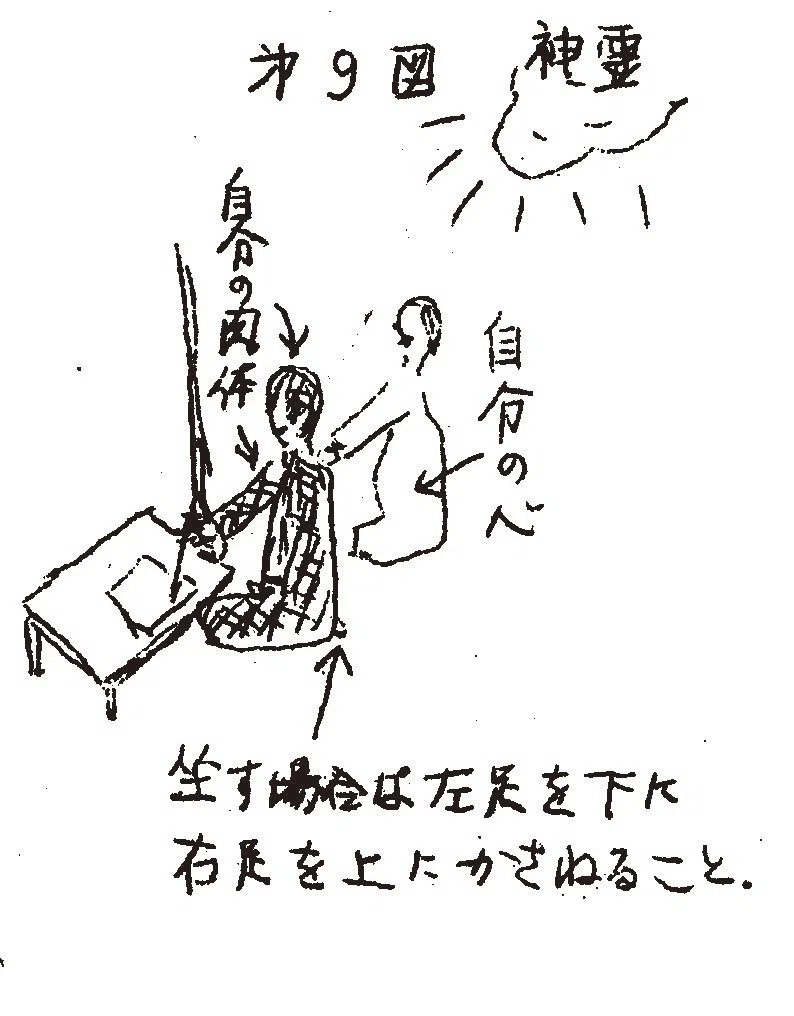 第9図
神霊
自分の肉体
自分の心
坐す場合は左足を下に
右足を上にかさねること。